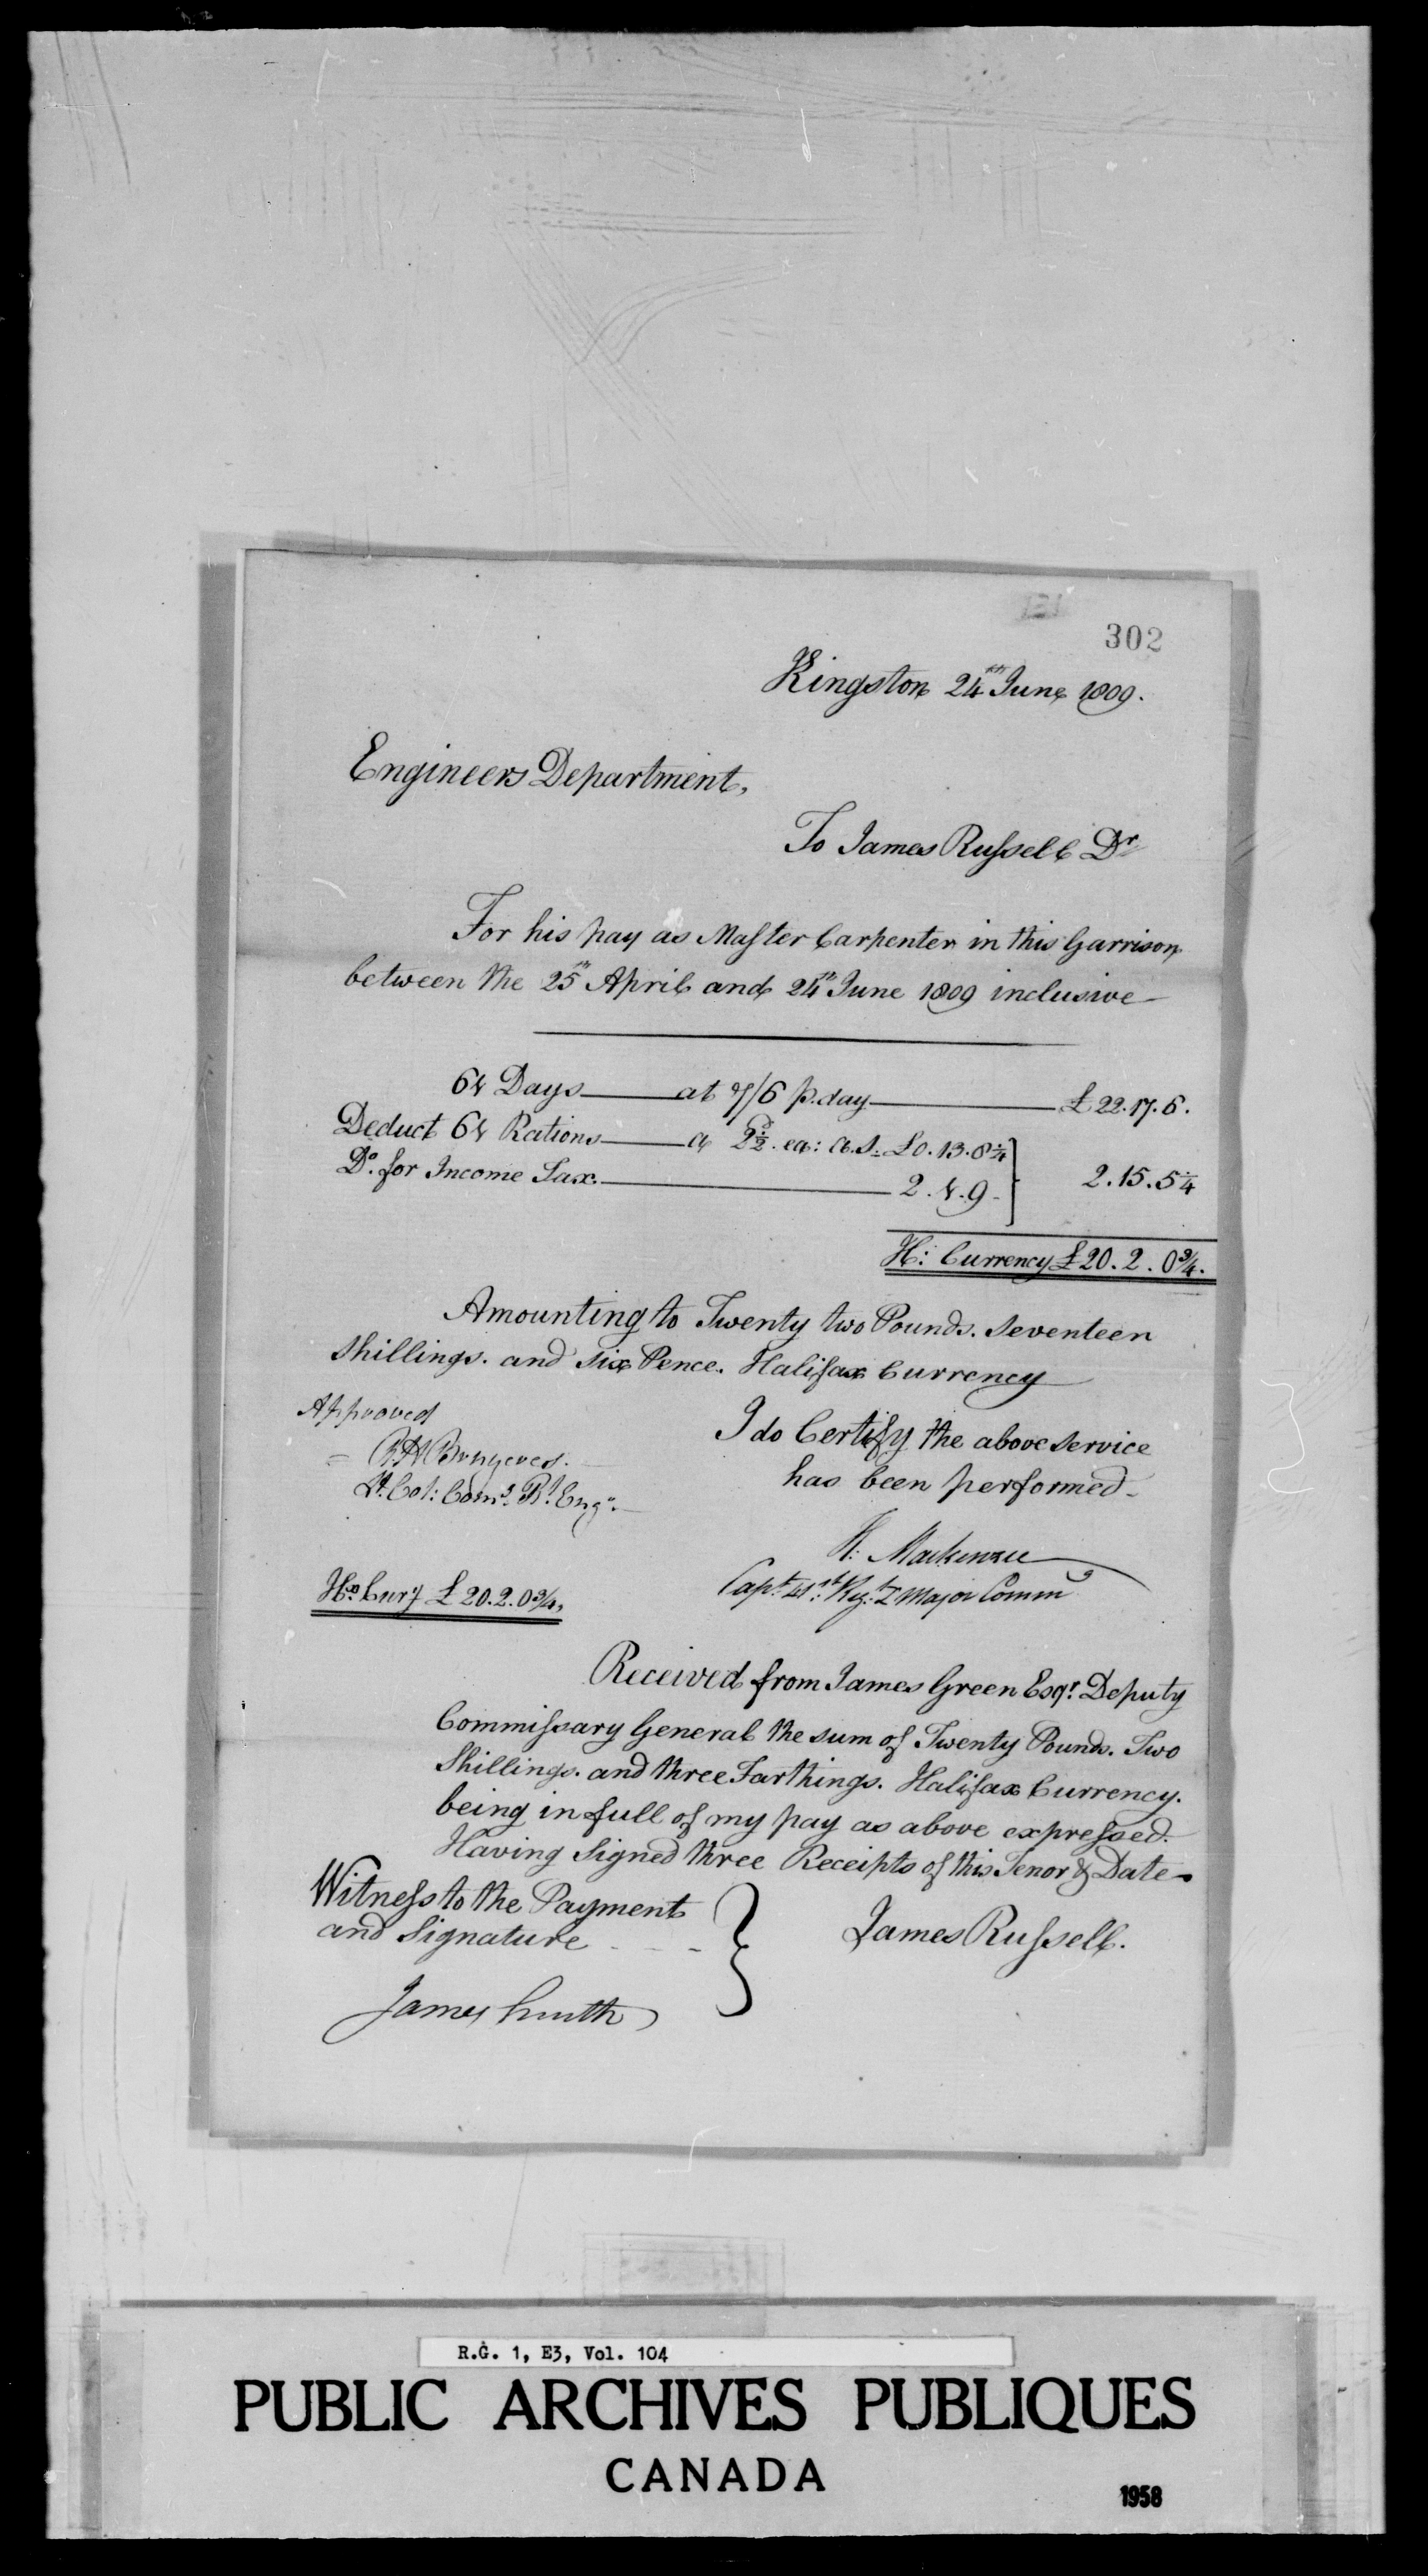 302
Kingston 24th June 1809.
Engineers Department,
To James Russell Dr
For his pay as Master Carpenter in this Garrison
between the 25th April and 24th June 1809 inclusive
61 Days at 7/6 p. day £22.17.6.
Deduct 61 Rations a 2d½. ea: a.s: £0.13.8¼
Do. for Income Tax. 2.1.9 2.15.5¼
H: Currency £20.2.0¾.
Amounting to Twenty two Pounds. Seventeen
Shillings. and Six Pence. Halifax Currency
Approved
R H Bruyeres.
Lt. Col: Comg. Rl. Engrs.
I do Certify the above service
has been performed
Mackenzie
Capt. 41st: Regt. T Major Comm
Hx. Cury £20.2.0¾,
Received from James Green Esqr. Deputy
Commissary General the sum of Twenty Pounds. Two
Shillings. and three Farthings. Halifax Currency.
being in full of my pay as above expressed.
Having Signed three Receipts of this Tenor & Date
Witness to the Payment
and Signature
James Russell.
James Smith
R.G. 1, E3, Vol. 104
PUBLIC ARCHIVES PUBLIQUES
CANADA
1958